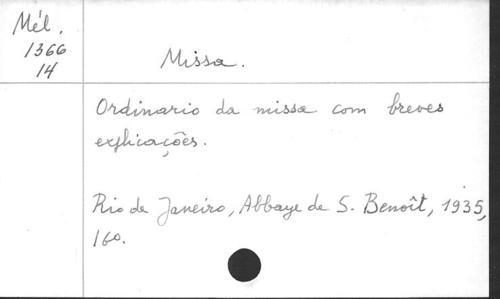 Mél.
1366
14
Missa.
Ordinario da missa com breves
explicações.
Rio de Janeiro, Abbaye de S. Benoît, 1935,
16o.